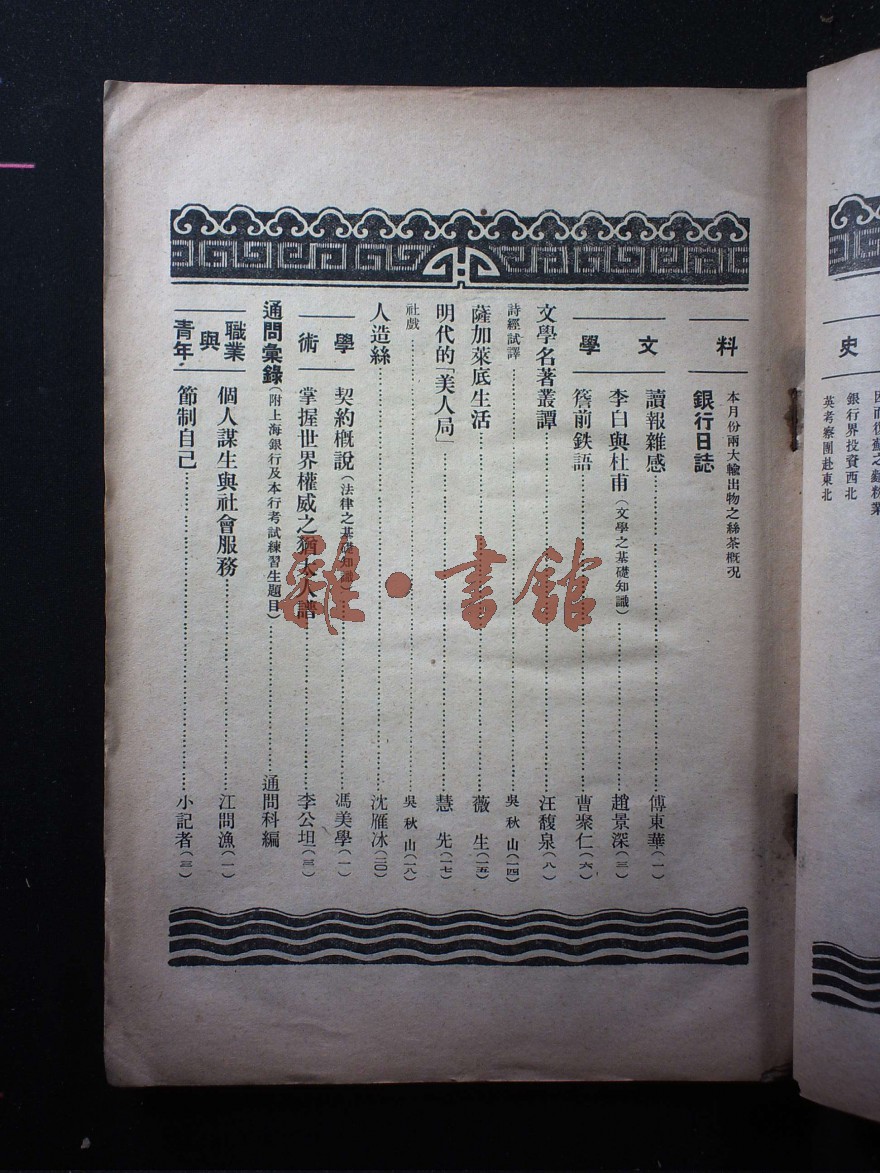 史
因而復蘇之
銀行界投資西北
英考察團赴東北
料
本月份兩大輸出物之絲茶概況
銀行日誌
文學
讀報雜感 傅東華(一)
李白與杜甫(文學之基礎知識) 趙景深(三)
簷前鉄語 曹聚仁(六)
文學名著叢譚 汪馥泉(八)
詩經試譯 吳秋山(一四)
薩加萊底生活 薇生(一五)
明代的「美人局」 慧先(一七)
社戲 吳秋山(一八)
人造絲 沈雁冰(二〇)
學術
契約槪說(法律之基礎知識) 馮美學(一)
掌握世界權威之猶太人譜 李公坦(三)
通問彙錄(附上海銀行及本行考試練習生題目) 通問科編
職業與青年
個人謀生與社會服務 江問漁(一)
節制自己 小記者(三)
雜·書館